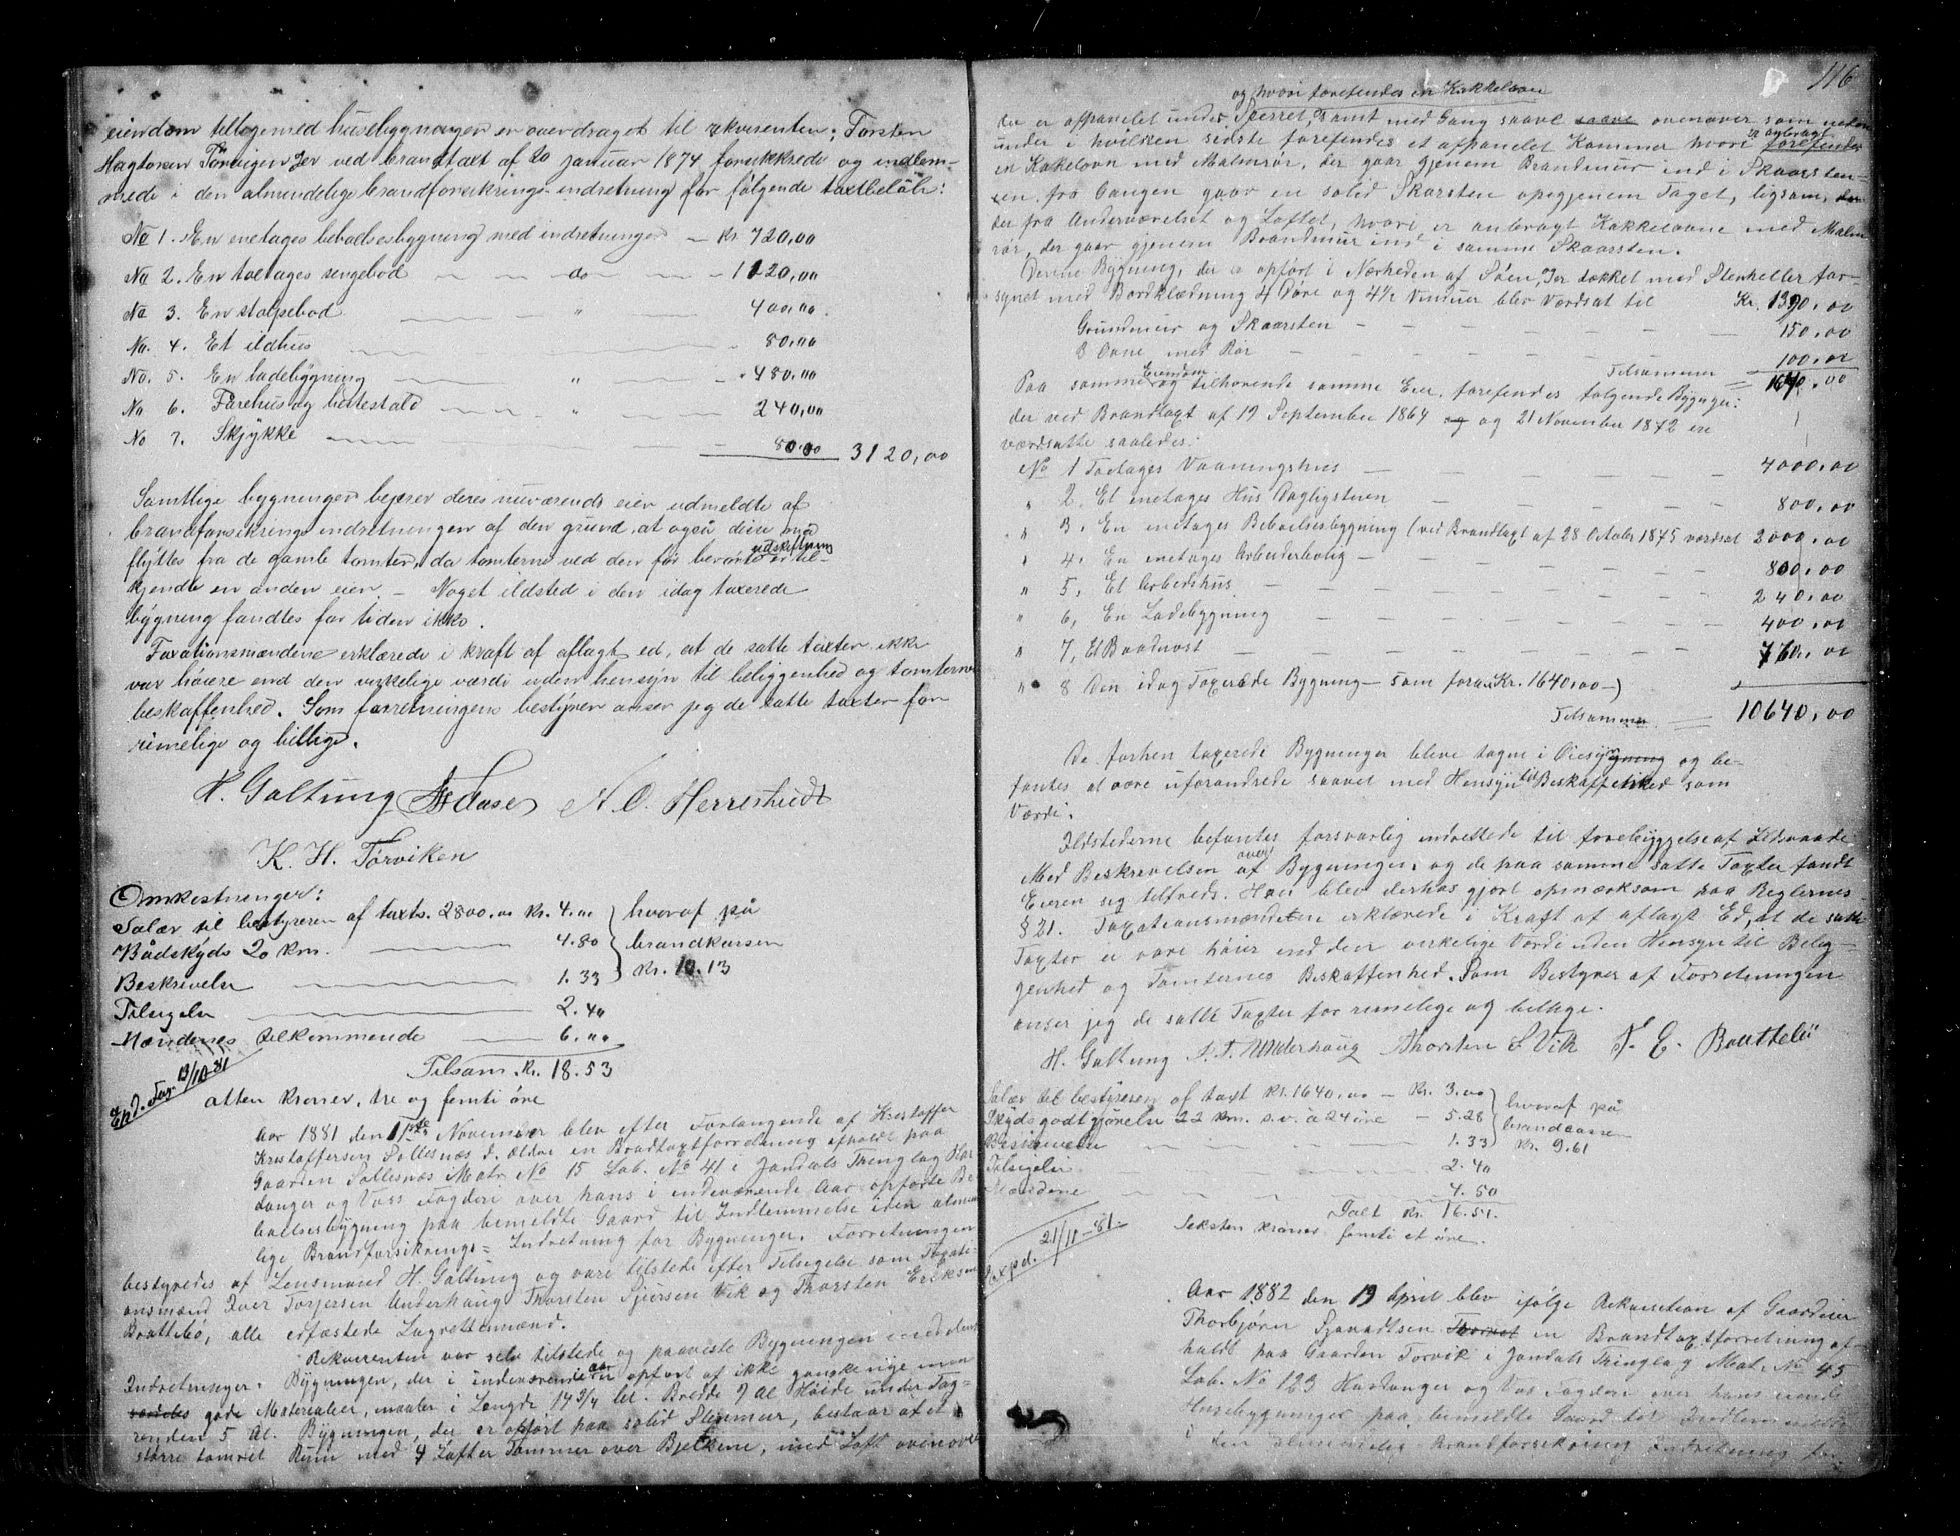 eiendom tilligemed husebygninger er overdraget til rekvirenten; Torsten
Hagtorsen Torvigen er ved brandtaxt af 20 januar 1874 forsikkrede og indlem-
mede i den almindelige brandforsikrings-indretning for følgende taxtbeløb:
No 1. En enetages beboelsesbygning med indretninger — Kr 720,00
No 2. En toetages sengebod — do — 1120,00
No 3. En stolpebod — " — 400,00
No. 4. Et ildhus — 80,00
No. 5. En ladebygning — " — 480,00
No 6. Farehus og hestestald — " — 240,00
No 7. Skjykke — 80,00 3120,00
Samtlige bygninger bejærer deres nuværende eier udmeldte af
brandforsikringsindretningen af den grund, at også disse må
udskiftning
flyttes fra de gamle tomter, da tomterne ved den før berørte er til-
kjendt en anden eier. — Noget ildsted i den idag taxerede
bygning fandtes for tiden ikke.
Taxationsmændene erklærede i kraft af aflagt ed, at de satte taxter ikke
var høiere end den virkelige værdi uden hensyn til beliggenhed og tomternes
beskaffenhed. Som forretningens bestyrer anser jeg de satte taxter for
rimelige og billige.
H. Galtung N. O. Herrestvedt
K. H. Torviken
Omkostninger:
Salær til bestyreren af taxts. 2800.00 Kr. 4.00 hvoraf på
Bådskyds 20 km. — 4.80 brandkassen
Beskrivelse — 1.33 Kr. 10.13
Tilsigelse — 2.40
Mændenes tilkommende — 6.00
Tilsam. Kr. 18.53
Exd. 19/10-81
atten kroner, tre og femti øre
Aar 1881 den 1ste November blev efter Forlangende af Kristoffer
Kristoffersen Sollesnæs d. ældre en Brandtaxtforretning afholdt paa
Gaarden Sollesnæs Matr. No 15 Løb. No 41 i Jondals Thinglag Har-
danger og Voss Fogderi over hans i indeværende Aar opførte Be-
boelsesbygning paa bemeldte Gaard til Indlemmelse i den almin-
lige Brandforsikrings-Indretning for Bygninger. Forretningen
bestyredes af Lensmand H. Galtung og vare tilstede efter Tilsigelse som Taxati-
onsmænd Iver Torjersen Underhaug, Thorsten Sjursen Vik og Thorsten Eriksen
Brattebø, alle edfæstede Lagrettemænd.
Rekvirenten var selv tilstede og paaviste Bygningen med dens
Indretninger. Bygningen, der i indeværende aar er opført af ikke ganske nye men
gode Materialier, maaler i Længde 14 3/4 Al. Bredde 9 Al Høide under Tag-
renden 5 Al. Bygningen, der er opført paa solid Stenmur, bestaar af et
større tømret Rum med 4 Lofter Tømmer over Bjelkene, med Loft ovenover
116
og hvori forefindes en Kakkelovn
der er afpanelet under Sperret, samt med Gang saavel ovenover som neden-
under i hvilken sidste forefindes et afpanelet Kammer hvori er anbragt
en Kakelovn med Malmrør, der gaar gjenem Brandmur ind i Skaarsten-
en, fra Gangen gaar en solid Skarsten opigjenem Taget, ligsom der
fra Underværelset og Loftet, hvori er anbragt Kakkelovne med Malm
rør, der gaar gjenem Brandmur ind i samme Skaarsten.
Denne Bygning, der er opført i Nærheden af Søen, er tækket med Stenheller for-
synet med Bordklædning 4 Døre og 4½ Vinduer blev værdsat til Kr. 1390.00
Grundmur og Skaarsten — 150.00
3 Ovne med Rør — 100.00
Tilsammen 1640.00
Paa samme Eiendom og tilhørende samme Eier, forefindes følgende Bygninger:
der ved Brandtaxt af 19 September 1864 og 21 November 1872 ere
værdsatte saaledes:
No 1 Toetages Vaaningshus — 4000.00
" 2. Et enetages Hus Dagligstuen — 800,00
" 3. En enetages Beboelsesbygning (ved Brandtaxt af 28 October 1875 værdsat 2000.00
" 4. En enetages Arbeiderbolig — 800.00
" 5, Et Arbeidshus — 240.00
" 6, En Ladebygning — 400,00
" 7, Et Baatnøst — 760.00
" 8 Den idag Taxerede Bygning — som foran Kr. 1640.00 —)
Tilsammen 10640,00
De forhen taxerede Bygninger bleve tagne i Øiesyn og be-
fantes at være uforandrede saavel med Hensyn til Beskaffenhed som
Værdi.
Ildstederne befantes forsvarlig indrettede til forebyggelse af Ildsvaade
Med Beskrivelsen over Bygningen, og de paa samme satte Taxter fandt
Eieren sig tilfreds. Han blev derhos gjort opmærksom paa Reglernes
§ 21. Taxationsmændene erklærede i Kraft af aflagt Ed, at de satte
Taxter ei vare høier end den virkelige Værdi uden Hensyn til Belig-
genhed og Tomternes Beskaffenhed. Som Bestyrer af Forretningen
anser jeg de satte Taxter for rimelige og billige.
H. Galtung I. T. Underhaug Thorsten S Vik T. E. Brattebø
Salær til bestyreren af taxt Kr. 1640.00 — Kr. 3.00 hvoraf på
Skydsgodtgjørelse 22 km. s.v. à 24 øre — 5.28 brandcassen
Beskrivelse — 1.33 Kr. 9.61
Tilsigelse — 2.40
Mændene — 4.50
Ialt Kr. 16.51.
Expd. 21/11-81.
Seksten kroner femti et øre.
Aar 1882 den 19 April blev ifølge Rekvisition af Gaardeier
Thorbjørn Sjovatsen en Brandtaxtforretning af-
holdt paa Gaarden Torvik i Jondals Thinglag Mat. No 45
Løb. No 123 Hardanger og Voss Fogderi over hans
Husebygninger paa bemeldte Gaard til Indlemmelse
i den almindelige Brandforsikring Indretning for